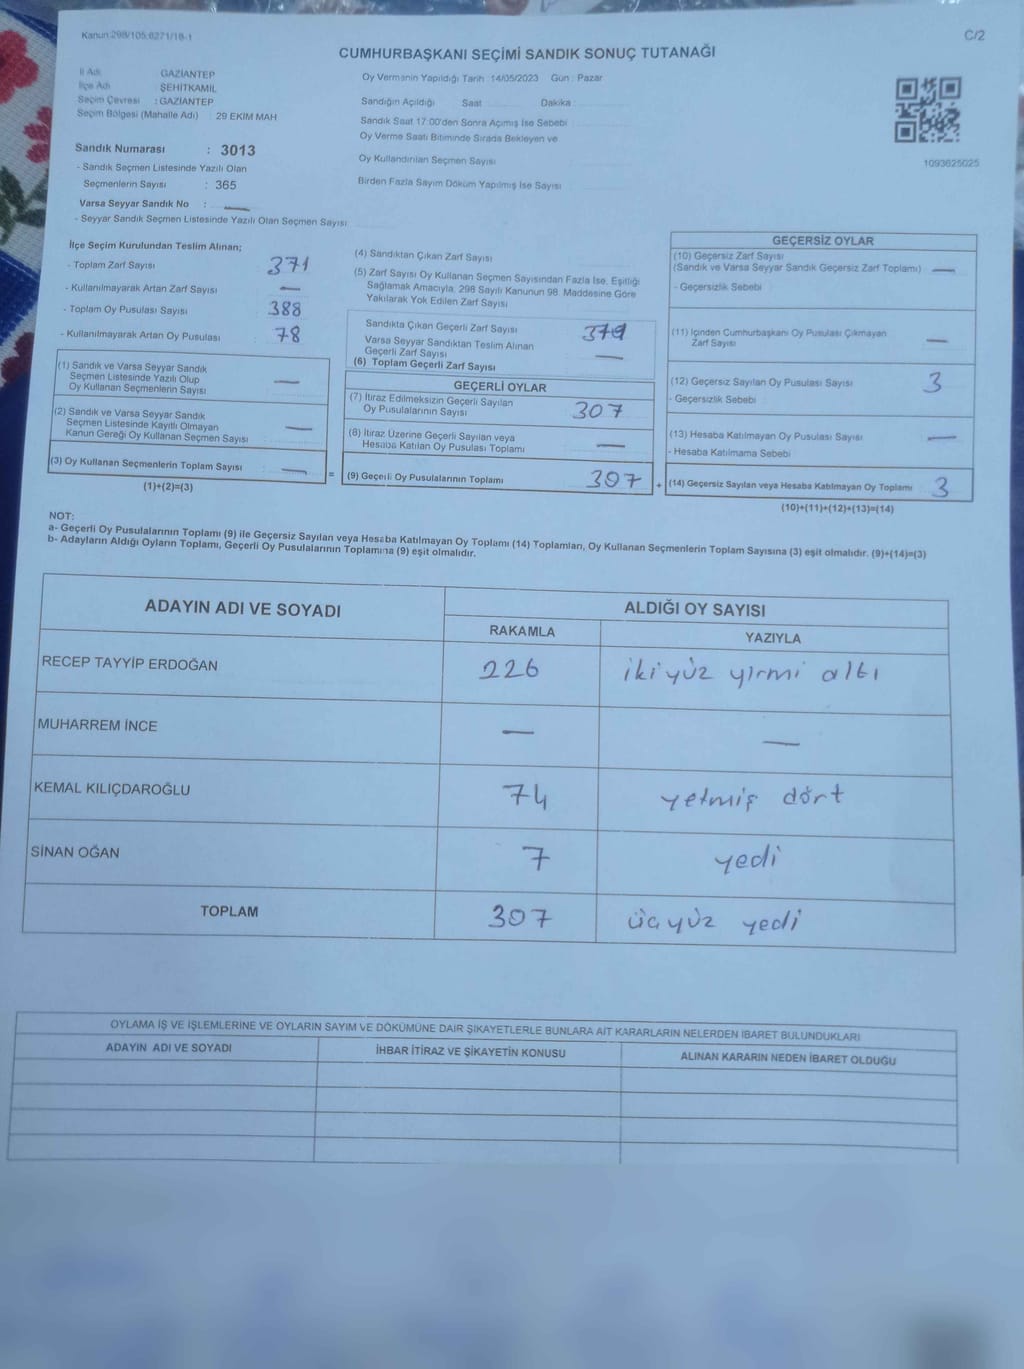 Kanun:298/105,6271/18-1
C/2
CUMHURBAŞKANI SEÇİMİ SANDIK SONUÇ TUTANAĞI
İl Adı GAZİANTEP
İlçe Adı ŞEHİTKAMİL
Seçim Çevresi : GAZİANTEP
Seçim Bölgesi (Mahalle Adı) : 29 EKİM MAH
Sandık Numarası : 3013
- Sandık Seçmen Listesinde Yazılı Olan
Seçmenlerin Sayısı : 365
Varsa Seyyar Sandık No : —
- Seyyar Sandık Seçmen Listesinde Yazılı Olan Seçmen Sayısı
Oy Vermenin Yapıldığı Tarih : 14/05/2023 Gün : Pazar
Sandığın Açıldığı Saat Dakika
Sandık Saat 17:00'den Sonra Açılmış İse Sebebi
Oy Verme Saati Bitiminde Sırada Bekleyen ve
Oy Kullandırılan Seçmen Sayısı
Birden Fazla Sayım Döküm Yapılmış İse Sayısı
1093625025
İlçe Seçim Kurulundan Teslim Alınan;
- Toplam Zarf Sayısı 371
- Kullanılmayarak Artan Zarf Sayısı —
- Toplam Oy Pusulası Sayısı 388
- Kullanılmayarak Artan Oy Pusulası 78
(1) Sandık ve Varsa Seyyar Sandık
Seçmen Listesinde Yazılı Olup
Oy Kullanan Seçmenlerin Sayısı —
(2) Sandık ve Varsa Seyyar Sandık
Seçmen Listesinde Kayıtlı Olmayan
Kanun Gereği Oy Kullanan Seçmen Sayısı —
(3) Oy Kullanan Seçmenlerin Toplam Sayısı —
(1)+(2)=(3)
=
(4) Sandıktan Çıkan Zarf Sayısı
(5) Zarf Sayısı Oy Kullanan Seçmen Sayısından Fazla İse, Eşitliği
Sağlamak Amacıyla, 298 Sayılı Kanunun 98. Maddesine Göre
Yakılarak Yok Edilen Zarf Sayısı
Sandıkta Çıkan Geçerli Zarf Sayısı
Varsa Seyyar Sandıktan Teslim Alınan
Geçerli Zarf Sayısı —
(6) Toplam Geçerli Zarf Sayısı
GEÇERLİ OYLAR
(7) İtiraz Edilmeksizin Geçerli Sayılan
Oy Pusulalarının Sayısı 307
(8) İtiraz Üzerine Geçerli Sayılan veya
Hesaba Katılan Oy Pusulası Toplamı —
(9) Geçerli Oy Pusulalarının Toplamı 307
+
GEÇERSİZ OYLAR
(10) Geçersiz Zarf Sayısı
(Sandık ve Varsa Seyyar Sandık Geçersiz Zarf Toplamı) —
- Geçersizlik Sebebi
(11) İçinden Cumhurbaşkanı Oy Pusulası Çıkmayan
Zarf Sayısı —
(12) Geçersiz Sayılan Oy Pusulası Sayısı 3
- Geçersizlik Sebebi
(13) Hesaba Katılmayan Oy Pusulası Sayısı —
- Hesaba Katılmama Sebebi
(14) Geçersiz Sayılan veya Hesaba Katılmayan Oy Toplamı 3
(10)+(11)+(12)+(13)=(14)
NOT:
a- Geçerli Oy Pusulalarının Toplamı (9) ile Geçersiz Sayılan veya Hesaba Katılmayan Oy Toplamı (14) Toplamları, Oy Kullanan Seçmenlerin Toplam Sayısına (3) eşit olmalıdır. (9)+(14)=(3)
b- Adayların Aldığı Oyların Toplamı, Geçerli Oy Pusulalarının Toplamına (9) eşit olmalıdır.
ADAYIN ADI VE SOYADI ALDIĞI OY SAYISI
RAKAMLA YAZIYLA
RECEP TAYYİP ERDOĞAN 226 ikiyüz yirmi altı
MUHARREM İNCE — —
KEMAL KILIÇDAROĞLU 74 yetmiş dört
SİNAN OĞAN 7 yedi
TOPLAM 307 üçyüz yedi
OYLAMA İŞ VE İŞLEMLERİNE VE OYLARIN SAYIM VE DÖKÜMÜNE DAİR ŞİKAYETLERLE BUNLARA AİT KARARLARIN NELERDEN İBARET BULUNDUKLARI
ADAYIN ADI VE SOYADI İHBAR İTİRAZ VE ŞİKAYETİN KONUSU ALINAN KARARIN NEDEN İBARET OLDUĞU